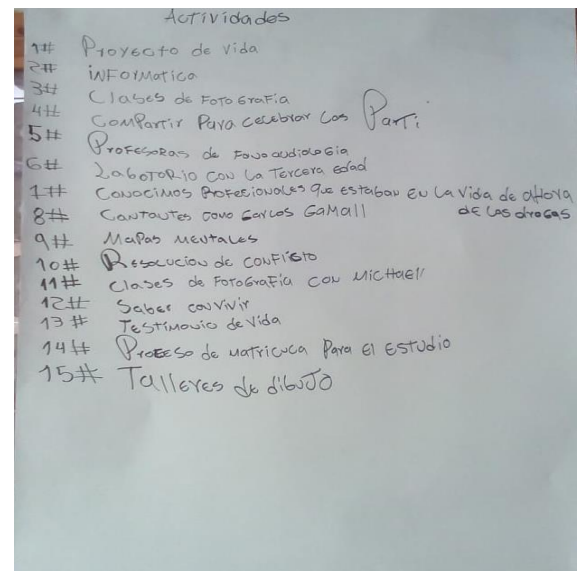 Actividades
1# Proyecto de vida
2# informatica
3# Clases de Fotografia
4# Compartir Para cecebrar Los Parti
5# Profesoras de Fonoaudiologia
6# Labotorio con la Tercera edad
7# Conocimos Profecionales que estaban en la vida de ahora de las drogas
8# Cantantes como Carlos Gamall
9# Mapas mentales
10# Resolucion de conflicto
11# Clases de Fotografia con Michaell
12# Saber convivir
13# Testimonio de vida
14# Proceso de matricuca Para El Estudio
15# Talleres de dibuJo